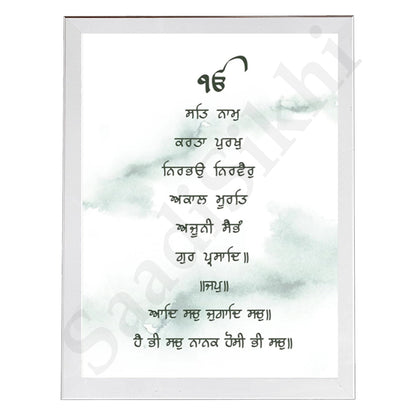 ੴ
ਸਤਿ ਨਾਮੁ
ਕਰਤਾ ਪੁਰਖੁ
ਨਿਰਭਉ ਨਿਰਵੈਰੁ
ਅਕਾਲ ਮੂਰਤਿ
ਅਜੂਨੀ ਸੈਭੰ
ਗੁਰ ਪ੍ਰਸਾਦਿ॥
॥ਜਪੁ॥
ਆਦਿ ਸਚੁ ਜੁਗਾਦਿ ਸਚੁ॥
ਹੈ ਭੀ ਸਚੁ ਨਾਨਕ ਹੋਸੀ ਭੀ ਸਚੁ॥
Saadisikhi